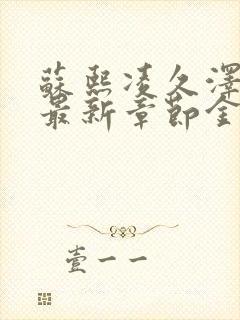 蘇熙凌久澤
最新章節全
壹一一